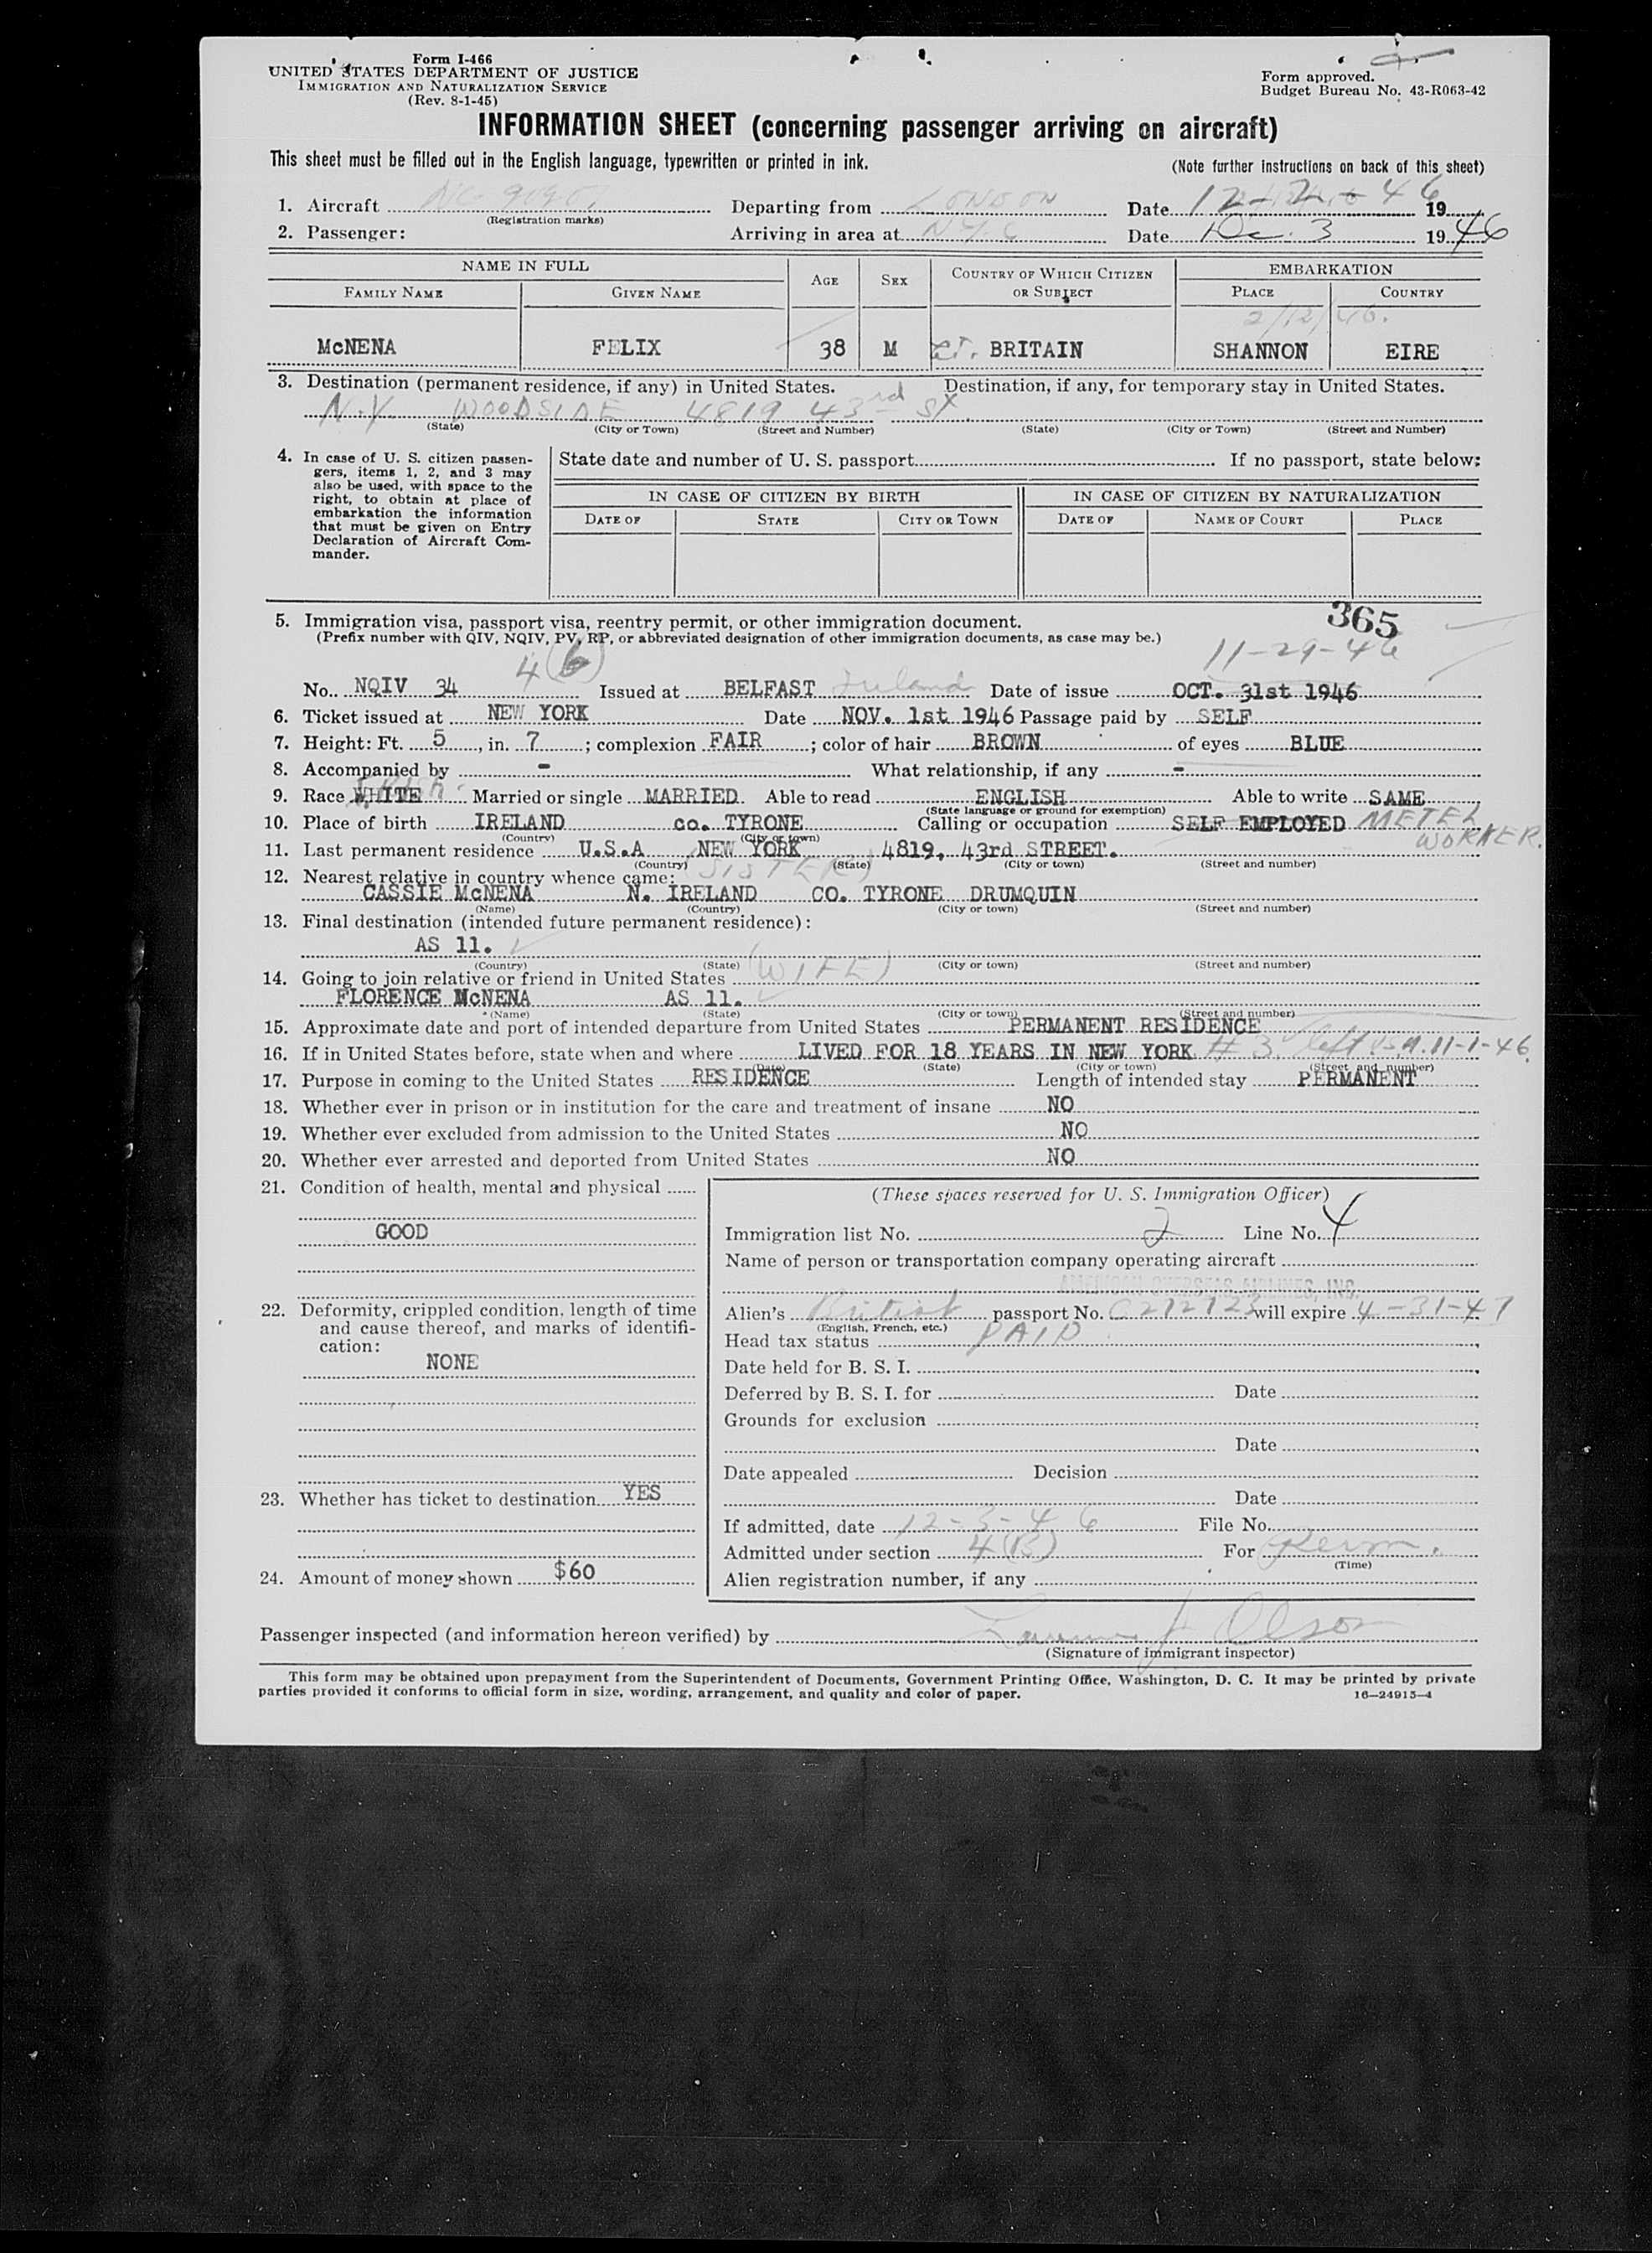 Form I-466
UNITED STATES DEPARTMENT OF JUSTICE
IMMIGRATION AND NATURALIZATION SERVICE
(Rev. 8-1-45)
Form approved.
Budget Bureau No. 43-R063-42
INFORMATION SHEET (concerning passenger arriving on aircraft)
This sheet must be filled out in the English language, typewritten or printed in ink.
(Note further instructions on back of this sheet)
1. Aircraft Departing from LONDON Date 12-2-46 19
(Registration marks)
2. Passenger: Arriving in area at N.Y.C Date Dec. 3 1946
NAME IN FULL AGE SEX COUNTRY OF WHICH CITIZEN OR SUBJECT EMBARKATION
FAMILY NAME GIVEN NAME PLACE COUNTRY
2/12/46.
McNENA FELIX 38 M GT. BRITAIN SHANNON EIRE
3. Destination (permanent residence, if any) in United States. Destination, if any, for temporary stay in United States.
N.Y. WOODSIDE 4819 43rd St.
(State) (City or Town) (Street and Number) (State) (City or Town) (Street and Number)
4. In case of U. S. citizen passengers, items 1, 2, and 3 may also be used, with space to the right, to obtain at place of embarkation the information that must be given on Entry Declaration of Aircraft Commander.
State date and number of U. S. passport If no passport, state below:
IN CASE OF CITIZEN BY BIRTH IN CASE OF CITIZEN BY NATURALIZATION
DATE OF STATE CITY OR TOWN DATE OF NAME OF COURT PLACE
5. Immigration visa, passport visa, reentry permit, or other immigration document. 365
(Prefix number with QIV, NQIV, PV, RP, or abbreviated designation of other immigration documents, as case may be.)
4(b) 11-29-46
No. NQIV 34 Issued at BELFAST Ireland Date of issue OCT. 31st 1946
6. Ticket issued at NEW YORK Date NOV. 1st 1946 Passage paid by SELF
7. Height: Ft. 5, in. 7; complexion FAIR; color of hair BROWN of eyes BLUE
8. Accompanied by - What relationship, if any -
9. Race WHITE Irish Married or single MARRIED. Able to read ENGLISH Able to write SAME
(State language or ground for exemption)
10. Place of birth IRELAND co. TYRONE Calling or occupation SELF EMPLOYED METEL WORKER.
(Country) (City or town)
11. Last permanent residence U.S.A NEW YORK 4819, 43rd STREET.
(Country) (State) (City or town) (Street and number)
12. Nearest relative in country whence came: (SISTER)
CASSIE McNENA N. IRELAND CO. TYRONE DRUMQUIN
(Name) (Country) (City or town) (Street and number)
13. Final destination (intended future permanent residence):
AS 11.
(Country) (State) (City or town) (Street and number)
14. Going to join relative or friend in United States (WIFE)
FLORENCE McNENA AS 11.
(Name) (State) (City or town) (Street and number)
15. Approximate date and port of intended departure from United States PERMANENT RESIDENCE
16. If in United States before, state when and where LIVED FOR 18 YEARS IN NEW YORK # 3 left 11-1-46
(Date) (State) (City or town) (Street and number)
17. Purpose in coming to the United States RESIDENCE Length of intended stay PERMANENT
18. Whether ever in prison or in institution for the care and treatment of insane NO
19. Whether ever excluded from admission to the United States NO
20. Whether ever arrested and deported from United States NO
21. Condition of health, mental and physical
GOOD
22. Deformity, crippled condition, length of time and cause thereof, and marks of identification:
NONE
23. Whether has ticket to destination YES
24. Amount of money shown $60
(These spaces reserved for U. S. Immigration Officer)
Immigration list No. 2 Line No. 4
Name of person or transportation company operating aircraft
AMERICAN OVERSEAS AIRLINES, INC.
Alien's British passport No. C272723 will expire 4-31-47
(English, French, etc.)
Head tax status PAID
Date held for B. S. I.
Deferred by B. S. I. for Date
Grounds for exclusion
Date
Date appealed Decision
Date
If admitted, date 12-3-46 File No.
Admitted under section 4(B) For Perm.
(Time)
Alien registration number, if any
Passenger inspected (and information hereon verified) by J Olson
(Signature of immigrant inspector)
This form may be obtained upon prepayment from the Superintendent of Documents, Government Printing Office, Washington, D. C. It may be printed by private
parties provided it conforms to official form in size, wording, arrangement, and quality and color of paper. 16—24915-4